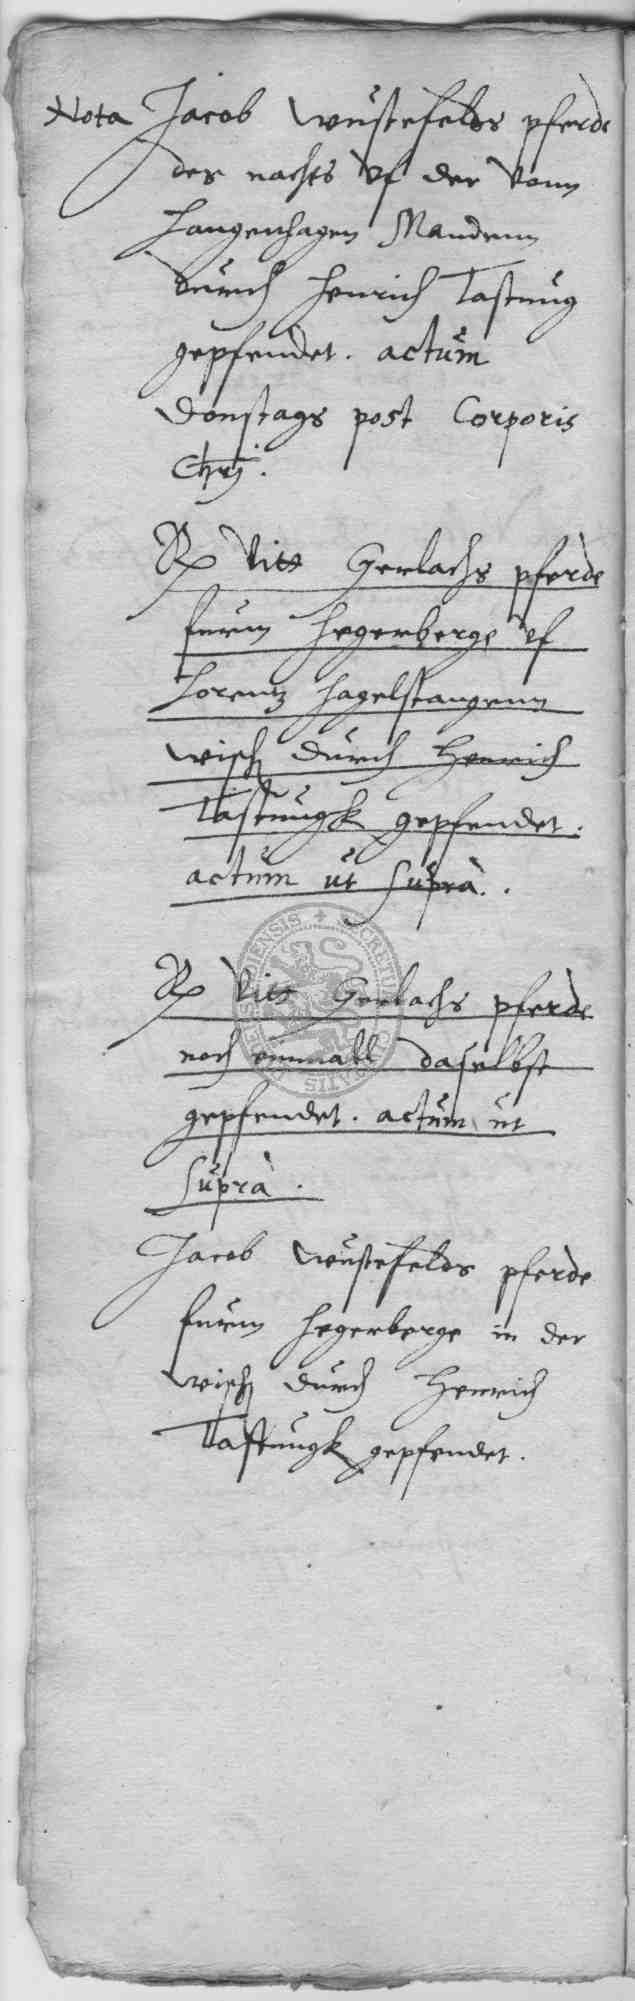 Nota Jacob Wüstefelds pferde
des nachts uf der vonn
Langenhagen Mandenn
durch Henrich Tastung
gepfendet. actům
Donstags post Corporis
Chrj.
Rp Vitt Gerlachs pferde
furm Hegerberge uf
Lorentz Hagelstangenn
wisch durch Henrich
Tastungk gepfendet.
actům ůt sůprà.
Rp Vitt Gerlachs pferde
noch einmall daselbst
gepfendet. actům ůt
sůprà.
Jacob Wůstefelds pferde
furm Hegerberge in der
wisch durch Henrich
Tastungk gepfendet.